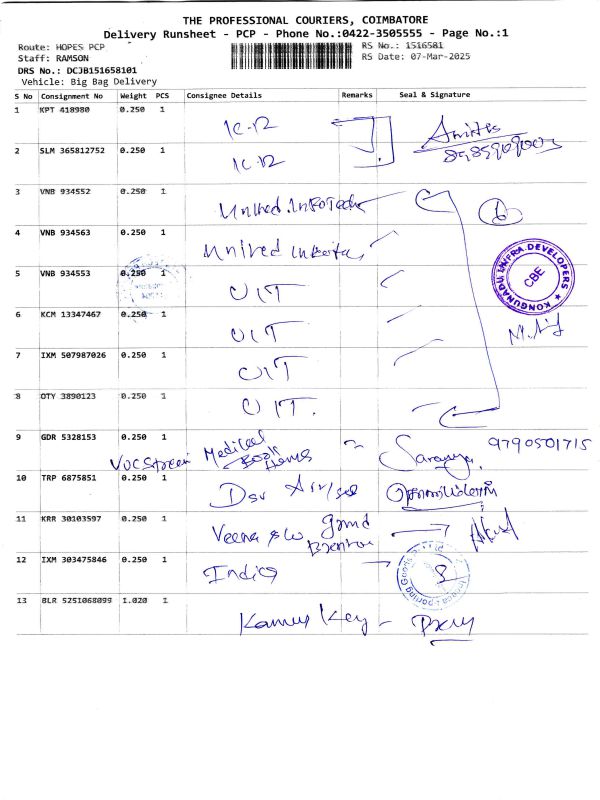 THE PROFESSIONAL COURIERS, COIMBATORE
Delivery Runsheet - PCP - Phone No.:0422-3505555 - Page No.:1
Route: HOPES PCP
RS No.: 1516581
Staff: RAMSON
RS Date: 07-Mar-2025
DRS No.: DCJB151658101
Vehicle: Big Bag Delivery
S No Consignment No Weight PCS Consignee Details Remarks Seal & Signature
1 KPT 418980 0.250 1
2 SLM 365812752 0.250 1
3 VNB 934552 0.250 1
4 VNB 934563 0.250 1 United
5 VNB 934553 0.250 1 UIT
KONGUNADU INFRA DEVELOPERS
CBE
6 KCM 13347467 0.250 1 UIT
7 IXM 507987026 0.250 1 UIT
8 OTY 3890123 0.250 1 UIT.
9 GDR 5328153 0.250 1 Medical Book House Saranya. 9790501715
VOC Street
10 TRP 6875851 0.250 1
11 KRR 30103597 0.250 1 Veena Grand
12 IXM 303475846 0.250 1 India
13 BLR 5251068099 1.020 1 Key